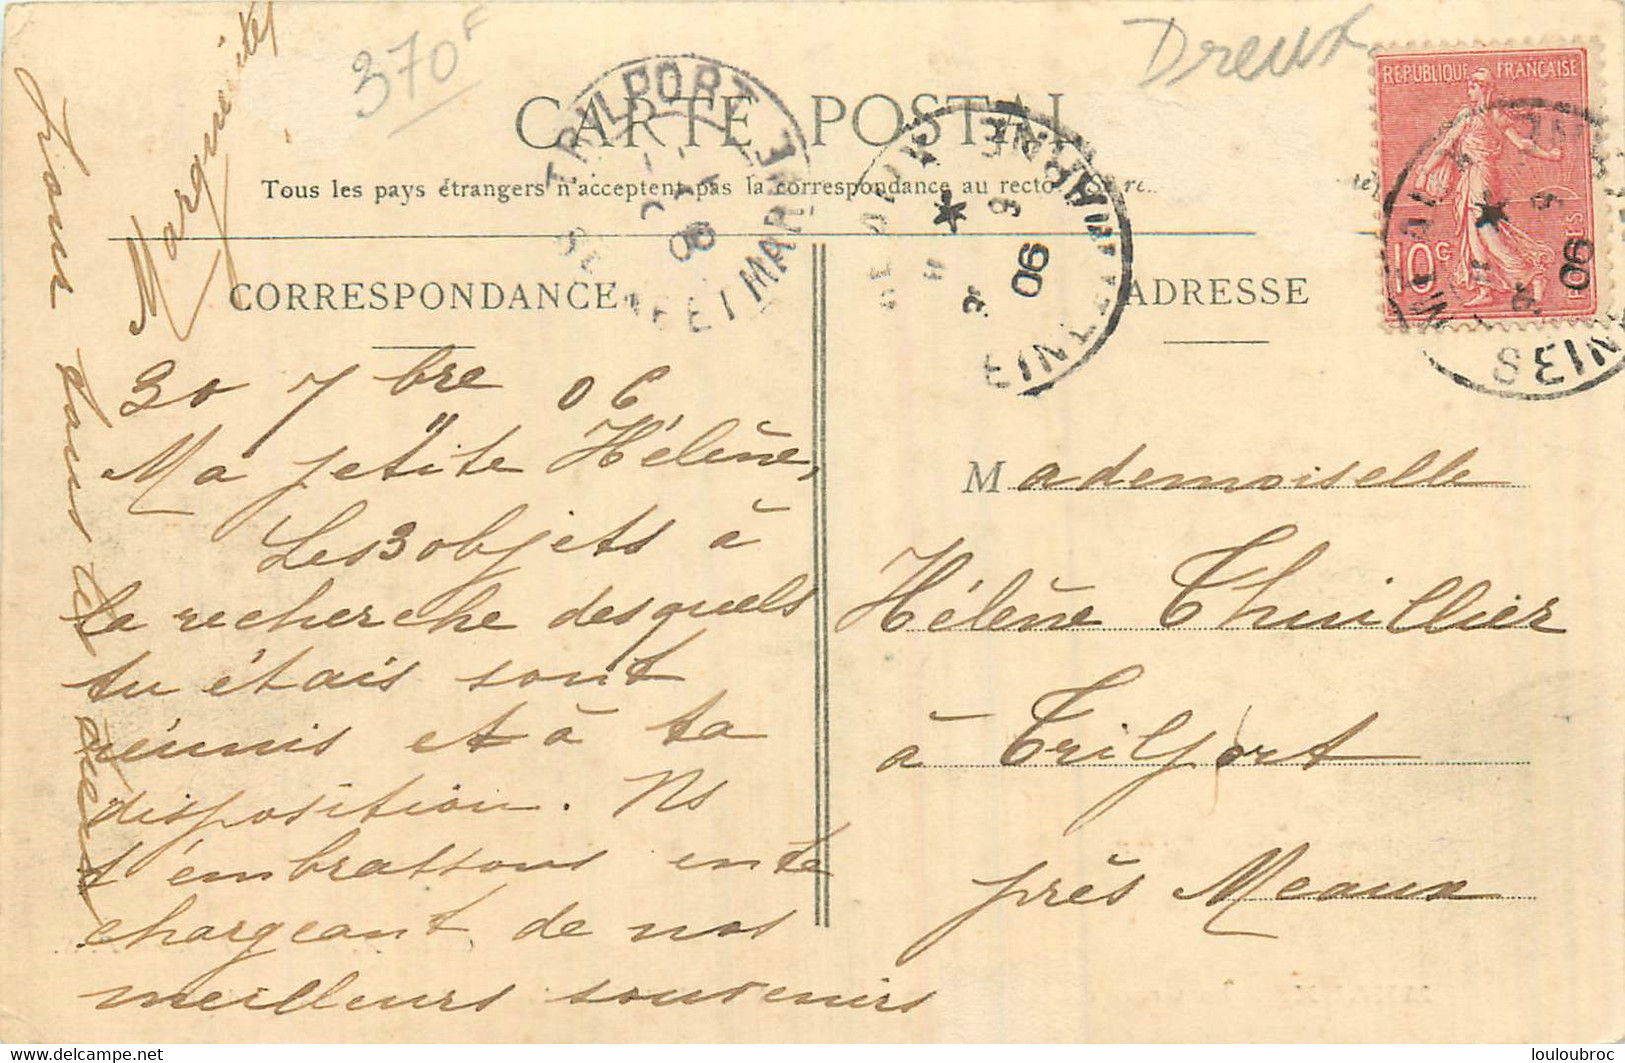 370F
Dreux
CARTE POSTALE
Tous les pays étrangers n'acceptent pas la correspondance au recto
CORRESPONDANCE
ADRESSE
RÉPUBLIQUE FRANÇAISE
10c
POSTES
TRILPORT
SEINE ET MARNE
06
MARNE
06
SEINE
06
30 7bre 06
Ma petite Hélène,
Les 3 objets à
la recherche desquels
tu étais sont
réunis et à ta
disposition. Ns
t'embrassons en te
chargeant de nos
meilleurs souvenirs
pour tous
Marguerite
Mademoiselle
Hélène Thuillier
à Trilport
près Meaux
louloubroc